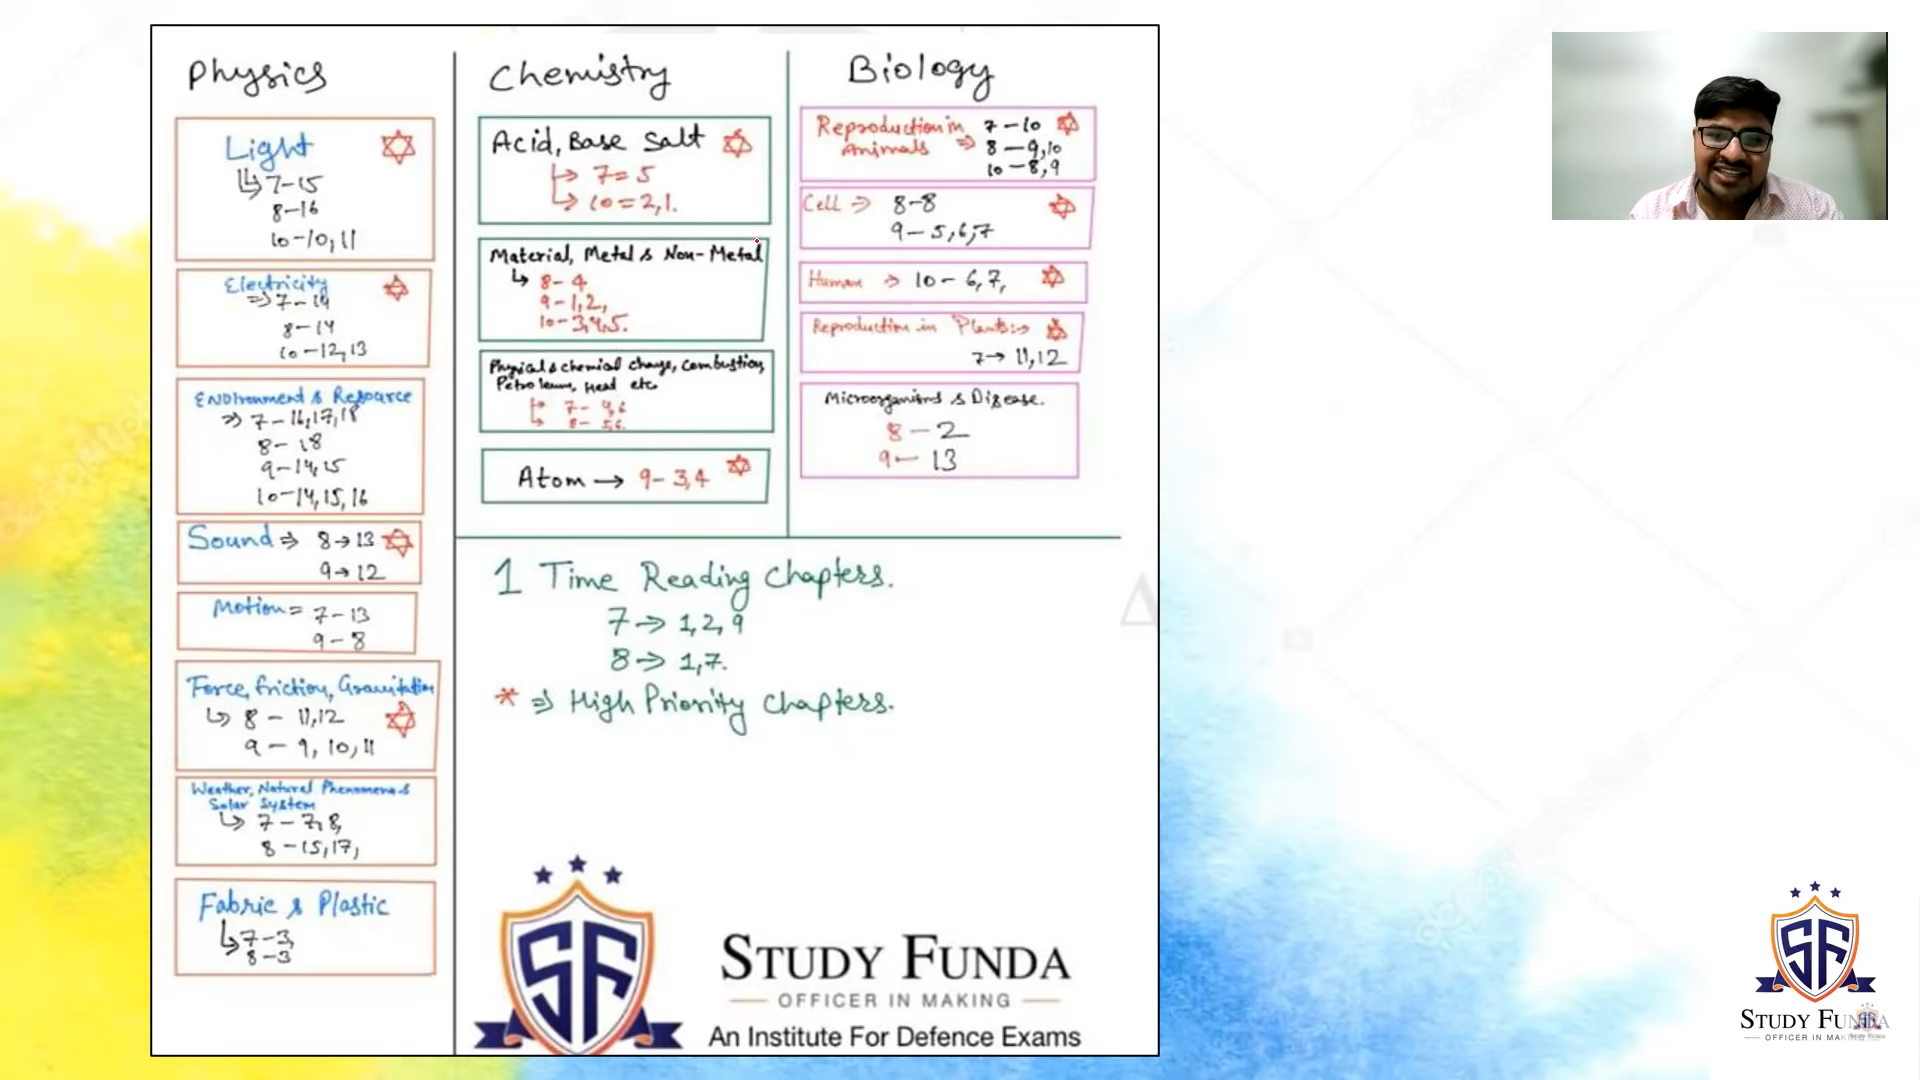 Physics
Light
7-15
8-16
10-10, 11
Electricity
⇒ 7-14
8-14
10-12, 13
Environment & Resource
⇒ 7-16, 17, 18
8-18
9-14, 15
10-14, 15, 16
Sound ⇒ 8→13
9→12
Motion = 7-13
9-8
Force, friction, Gravitation
↳ 8-11,12
9-9, 10, 11
Weather, Natural Phenomena &
Solar System
↳ 7-7, 8,
8-15, 17,
Fabric & Plastic
↳ 7-3,
8-3
Chemistry
Acid, Base Salt
→ 7=5
→ 10=2,1.
Material, Metal & Non-Metal
↳ 8-4,
9-1,2,
10-3,4,5.
Physical & chemical change, Combustion,
Petroleum, Heat etc
7-4,6
8-5,6.
Atom → 9-3,4
Biology
Reproduction in 7-10
Animals ⇒ 8-9,10
10-8,9
Cell ⇒ 8-8
9-5,6,7
Human ⇒ 10-6,7,
Reproduction in Plants ⇒
7→ 11,12
Microorganisms & Disease.
8-2
9-13
1 Time Reading Chapters.
7→ 1, 2, 9
8→ 1,7.
* ⇒ High Priority Chapters.
SF
STUDY FUNDA
OFFICER IN MAKING
An Institute For Defence Exams
SF
STUDY FUNDA
OFFICER IN MAKING